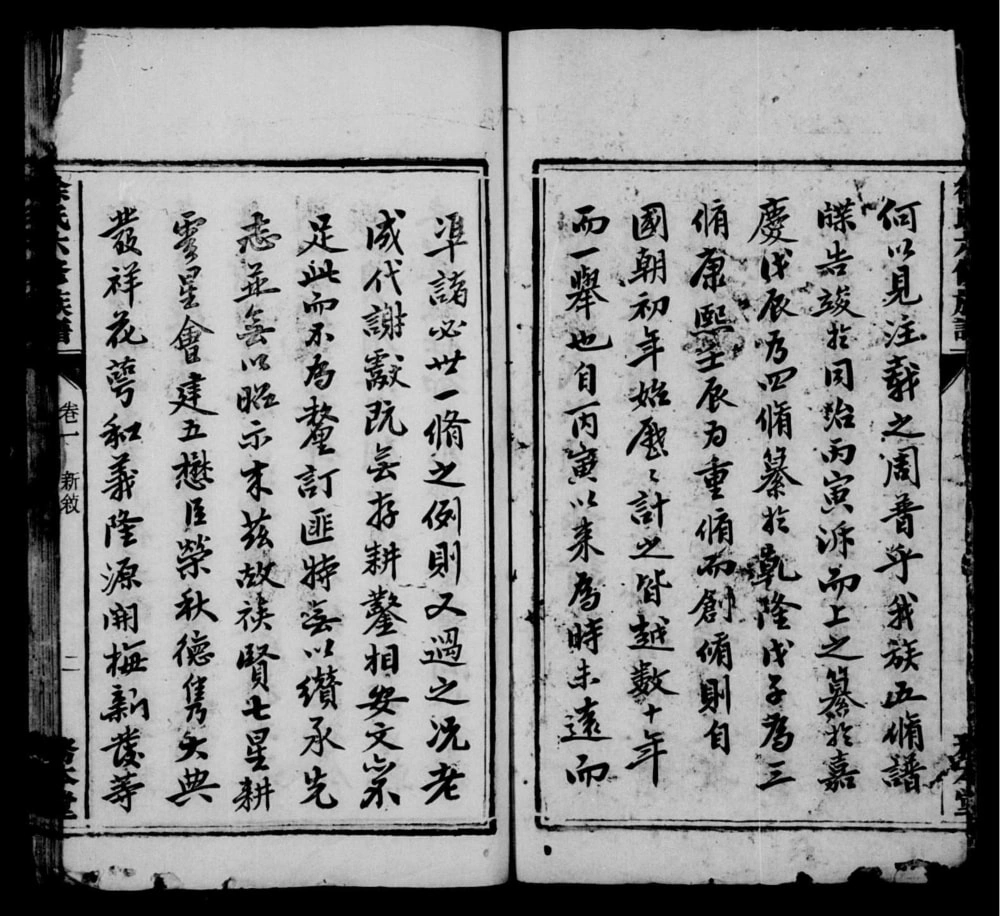 何以見注載之周普乎我族五脩譜
牒告竣於同治丙寅泝而上之纂於嘉
慶戊辰乃四脩纂於乾隆戊子為三
脩康熙壬辰為重脩而創脩則自
國朝初年始歷〻計之皆越數十年
而一舉也自丙寅以來為時未遠而
準諸必世一脩之例則又過之况老
成代謝獻既無存耕鑿相安文不
足此而不為釐訂匪特無以纘承先
志並無以昭示來茲故族賢七星耕
雲星會建五懋臣榮秋德雋大典
發祥花萼和義隆源開梅新發等
氏六修族譜
卷一
新敘
二